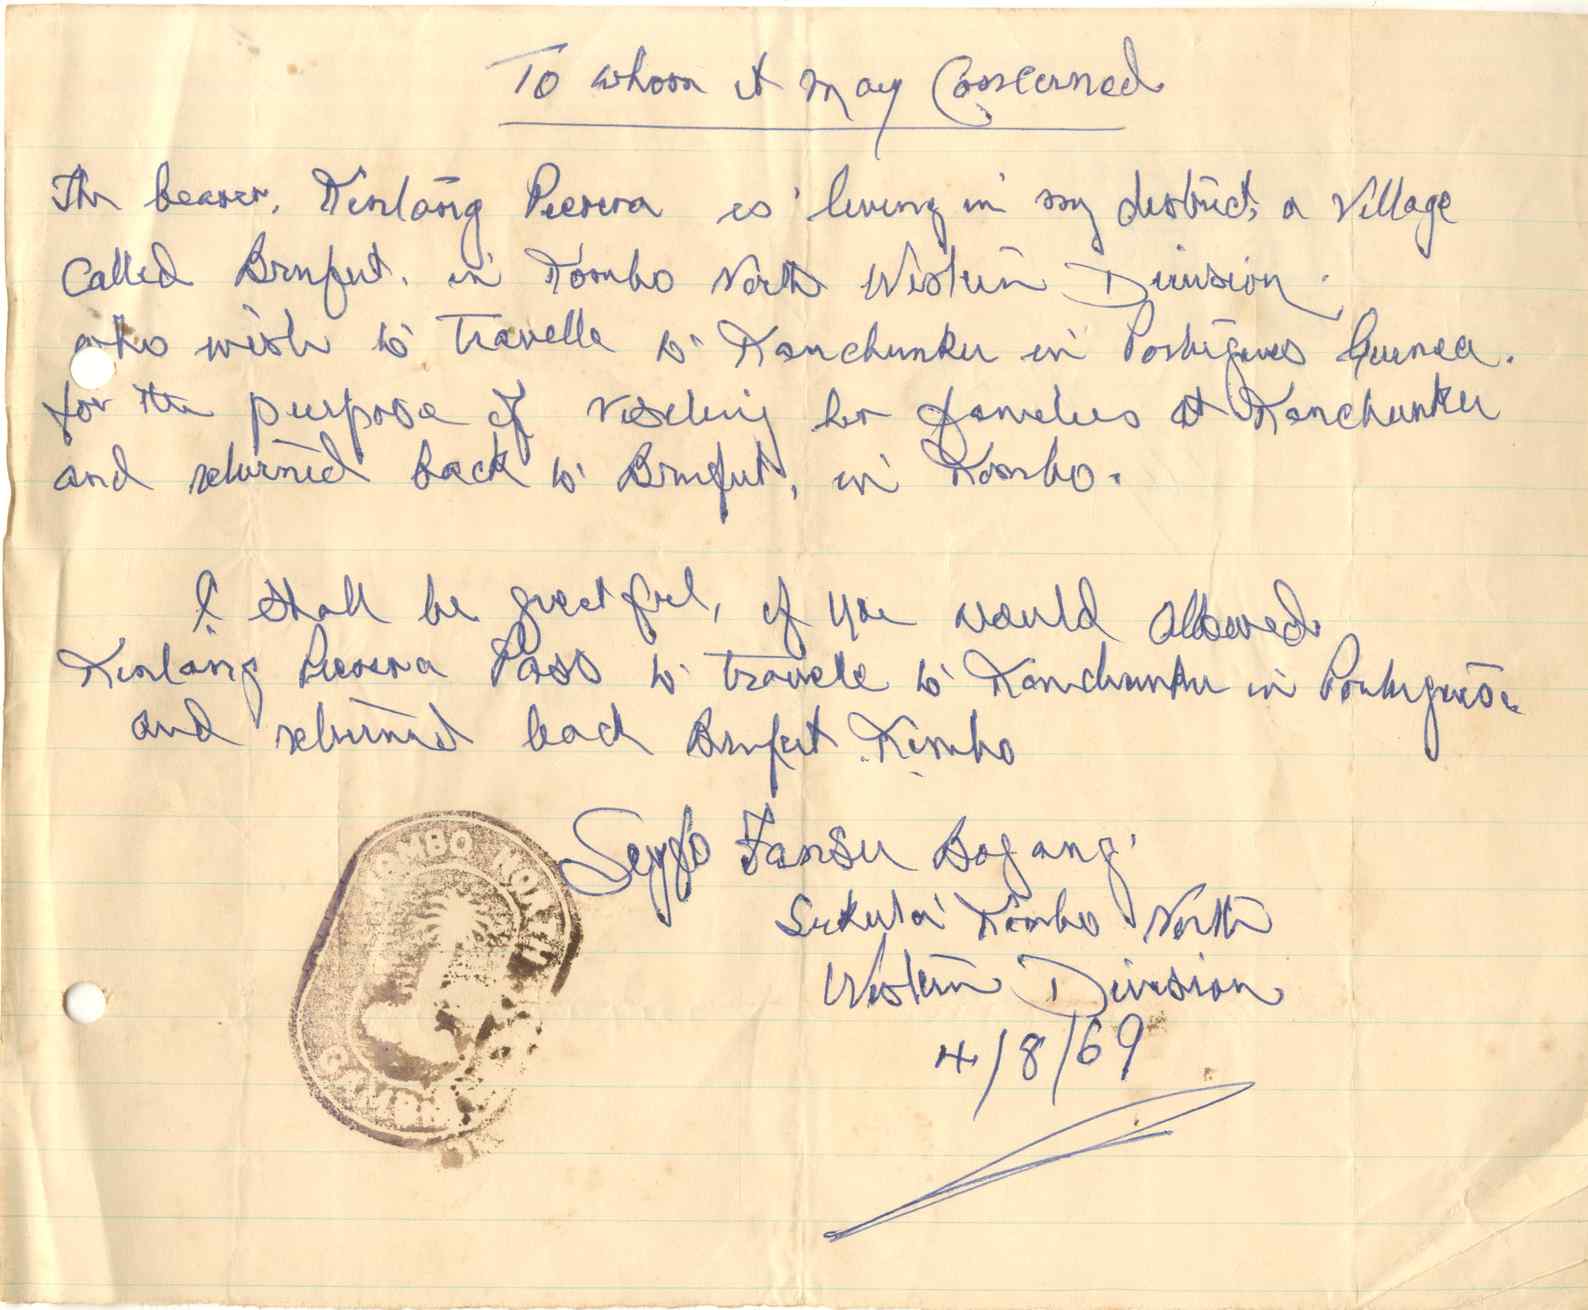 To whom it may Concerned
The bearer, Kinlang Pierera is living in my district, a Village
Called Brufut, in Kombo North Western Division.
who wish to Travelle to Kanchunku in Portugues Guinea.
for the purpose of visiting her families at Kanchunku
and returned back to Brufut, in Kombo.
I shall be greatful, if you would allowed
Kinlang Pierera Pass to travele to Kanchunku in Portuguese
and returned back Brufut Kombo
Seyfo Fansu Bojang
Sukuta Kombo North
Western Division
4/8/69
KOMBO NORTH
GAMBIA